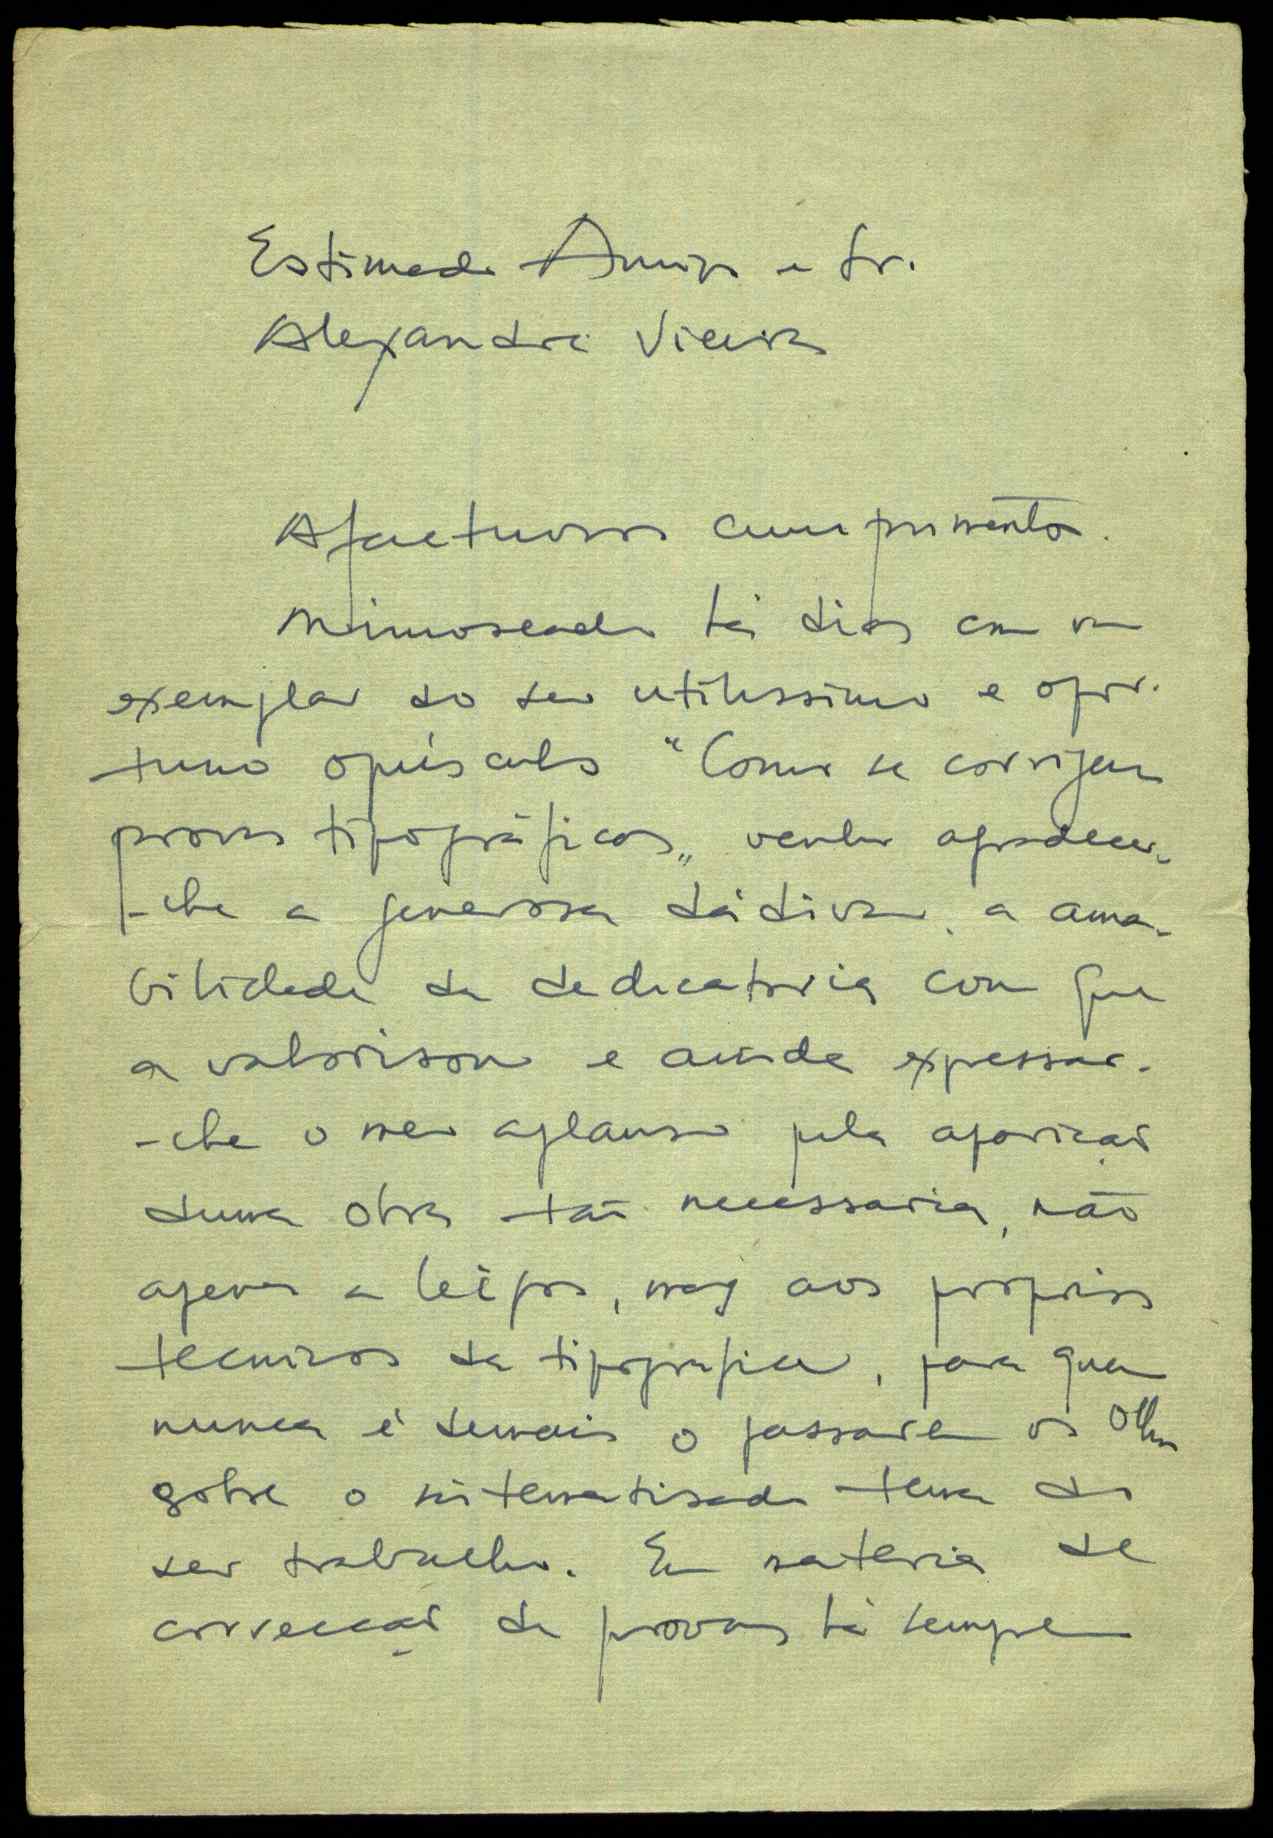 Estimado Amigo e Sr.
Alexandre Vieira
Afectuosos cumprimentos.
Mimoseado há dias com um
exemplar do seu utilissimo e opor-
tuno opúsculo "Como se corrigem
provas tipográficas" venho agradecer-
-lhe a generosa dádiva, a ama-
bilidade da dedicatoria com que
a valorisou e ainda expressar-
-lhe o meu aplauso pela aparição
duma obra tão necessaria, não
apenas a leigos, mas aos proprios
tecnicos da tipografia, para quem
nunca é demais o passarem os olhos
sobre o sistematisado tema do
seu trabalho. Em materia de
correcção de provas há sempre